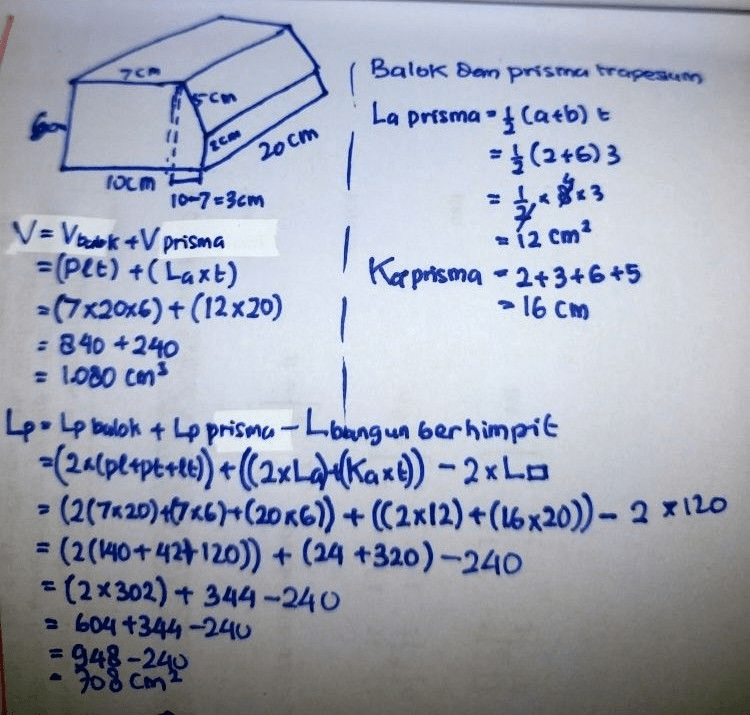 7cm
5cm
6cm
2cm
20cm
10cm
10-7=3cm
V = Vbalok + V prisma
=(Plt) + (Laxt)
=(7x20x6) + (12x20)
= 840 + 240
= 1.080 cm³
Balok dan prisma trapesium
La prisma = ½ (a+b) t
= ½ (2+6) 3
= ½ x 8 4 x 3
= 12 cm²
Ka prisma = 2+3+6+5
= 16 cm
Lp = Lp balok + Lp prisma - L bangun berhimpit
=(2x(pl+pt+lt)) + ((2xLa)+(Kaxt)) - 2xL□
= (2(7x20)+(7x6)+(20x6)) + ((2x12)+(16x20)) - 2 x120
= (2(140+42+120)) + (24+320) -240
= (2x302) + 344 -240
= 604+344-240
= 948-240
= 708 cm²